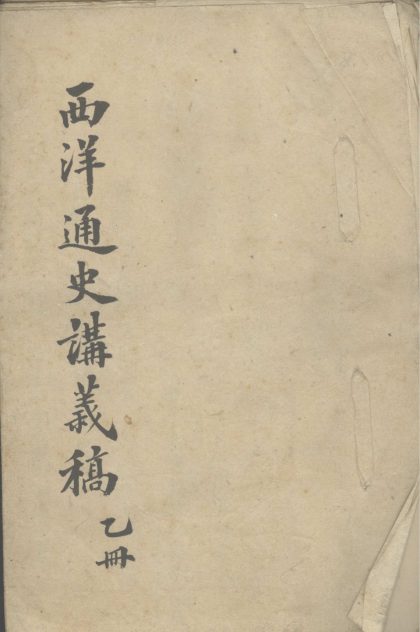 西洋通史講義稿
乙冊